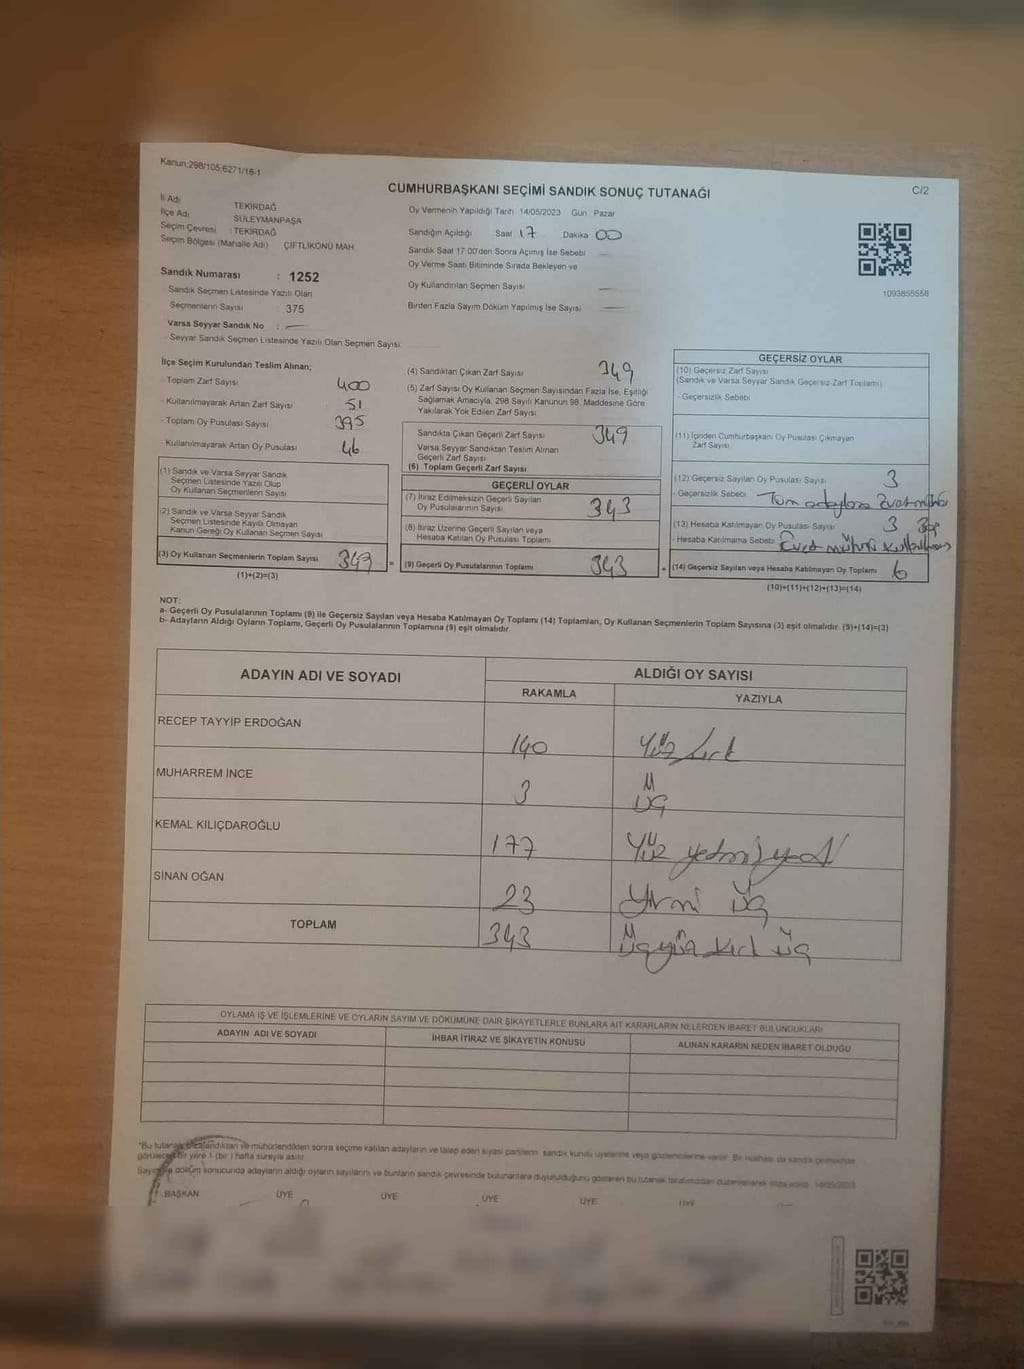 Kanun:298/105;6271/18-1
CUMHURBAŞKANI SEÇİMİ SANDIK SONUÇ TUTANAĞI
C/2
İl Adı TEKİRDAĞ
İlçe Adı SÜLEYMANPAŞA
Seçim Çevresi : TEKİRDAĞ
Seçim Bölgesi (Mahalle Adı) ÇİFTLİKÖNÜ MAH.
Oy Vermenin Yapıldığı Tarih 14/05/2023 Gün Pazar
Sandığın Açıldığı Saat 17 Dakika 00
Sandık Saat 17:00'den Sonra Açımış İse Sebebi
Oy Verme Saati Bitiminde Sırada Bekleyen ve
Oy Kullandırılan Seçmen Sayısı
Birden Fazla Sayım Döküm Yapılmış İse Sayısı
1093855558
Sandık Numarası : 1252
Sandık Seçmen Listesinde Yazılı Olan
Seçmenlerin Sayısı 375
Varsa Seyyar Sandık No :
Seyyar Sandık Seçmen Listesinde Yazılı Olan Seçmen Sayısı
İlçe Seçim Kurulundan Teslim Alınan;
- Toplam Zarf Sayısı 400
- Kullanılmayarak Artan Zarf Sayısı 51
- Toplam Oy Pusulası Sayısı 395
- Kullanılmayarak Artan Oy Pusulası 46
(1) Sandık ve Varsa Seyyar Sandık
Seçmen Listesinde Yazılı Olup
Oy Kullanan Seçmenlerin Sayısı
(2) Sandık ve Varsa Seyyar Sandık
Seçmen Listesinde Kayıtlı Olmayan
Kanun Gereği Oy Kullanan Seçmen Sayısı
(3) Oy Kullanan Seçmenlerin Toplam Sayısı 349
(1)+(2)=(3)
(4) Sandıktan Çıkan Zarf Sayısı 349
(5) Zarf Sayısı Oy Kullanan Seçmen Sayısından Fazla İse, Eşitliği
Sağlamak Amacıyla, 298 Sayılı Kanunun 98. Maddesine Göre
Yakılarak Yok Edilen Zarf Sayısı
Sandıkta Çıkan Geçerli Zarf Sayısı 349
Varsa Seyyar Sandıktan Teslim Alınan
Geçerli Zarf Sayısı
(6) Toplam Geçerli Zarf Sayısı
GEÇERLİ OYLAR
(7) İtiraz Edilmeksizin Geçerli Sayılan
Oy Pusulalarının Sayısı 343
(8) İtiraz Üzerine Geçerli Sayılan veya
Hesaba Katılan Oy Pusulası Toplamı
= (9) Geçerli Oy Pusulalarının Toplamı 343
GEÇERSİZ OYLAR
(10) Geçersiz Zarf Sayısı
(Sandık ve Varsa Seyyar Sandık Geçersiz Zarf Toplamı)
- Geçersizlik Sebebi
(11) İçinden Cumhurbaşkanı Oy Pusulası Çıkmayan
Zarf Sayısı
(12) Geçersiz Sayılan Oy Pusulası Sayısı 3
- Geçersizlik Sebebi Tüm adaylara
(13) Hesaba Katılmayan Oy Pusulası Sayısı 3
- Hesaba Katılmama Sebebi Evet mührü
+ (14) Geçersiz Sayılan veya Hesaba Katılmayan Oy Toplamı 6
(10)+(11)+(12)+(13)=(14)
NOT:
a- Geçerli Oy Pusulalarının Toplamı (9) ile Geçersiz Sayılan veya Hesaba Katılmayan Oy Toplamı (14) Toplamları, Oy Kullanan Seçmenlerin Toplam Sayısına (3) eşit olmalıdır. (9)+(14)=(3)
b- Adayların Aldığı Oyların Toplamı, Geçerli Oy Pusulalarının Toplamına (9) eşit olmalıdır.
ADAYIN ADI VE SOYADI ALDIĞI OY SAYISI
RAKAMLA YAZIYLA
RECEP TAYYİP ERDOĞAN 140 Yüz kırk
MUHARREM İNCE 3 üç
KEMAL KILIÇDAROĞLU 177 Yüz yetmiş yedi
SİNAN OĞAN 23 yirmi üç
TOPLAM 343 üçyüz kırk üç
OYLAMA İŞ VE İŞLEMLERİNE VE OYLARIN SAYIM VE DÖKÜMÜNE DAİR ŞİKAYETLERLE BUNLARA AİT KARARLARIN NELERDEN İBARET BULUNDUKLARI
ADAYIN ADI VE SOYADI İHBAR İTİRAZ VE ŞİKAYETİN KONUSU ALINAN KARARIN NEDEN İBARET OLDUĞU
*Bu tutanak imzalandıktan ve mühürlendikten sonra seçime katılan adayların ve talep eden siyasi partilerin sandık kurulu üyelerine veya gözlemcilerine verilir. Bir nüshası da sandık çevresinde
görülecek bir yere 1 (bir) hafta süreyle asılır.
Sayım ve döküm sonucunda adayların aldığı oyların sayılarını ve bunların sandık çevresinde bulunanlara duyurulduğunu gösteren bu tutanak tarafımızdan düzenlenerek imza edildi. 14/05/2023
BAŞKAN ÜYE ÜYE ÜYE ÜYE ÜYE